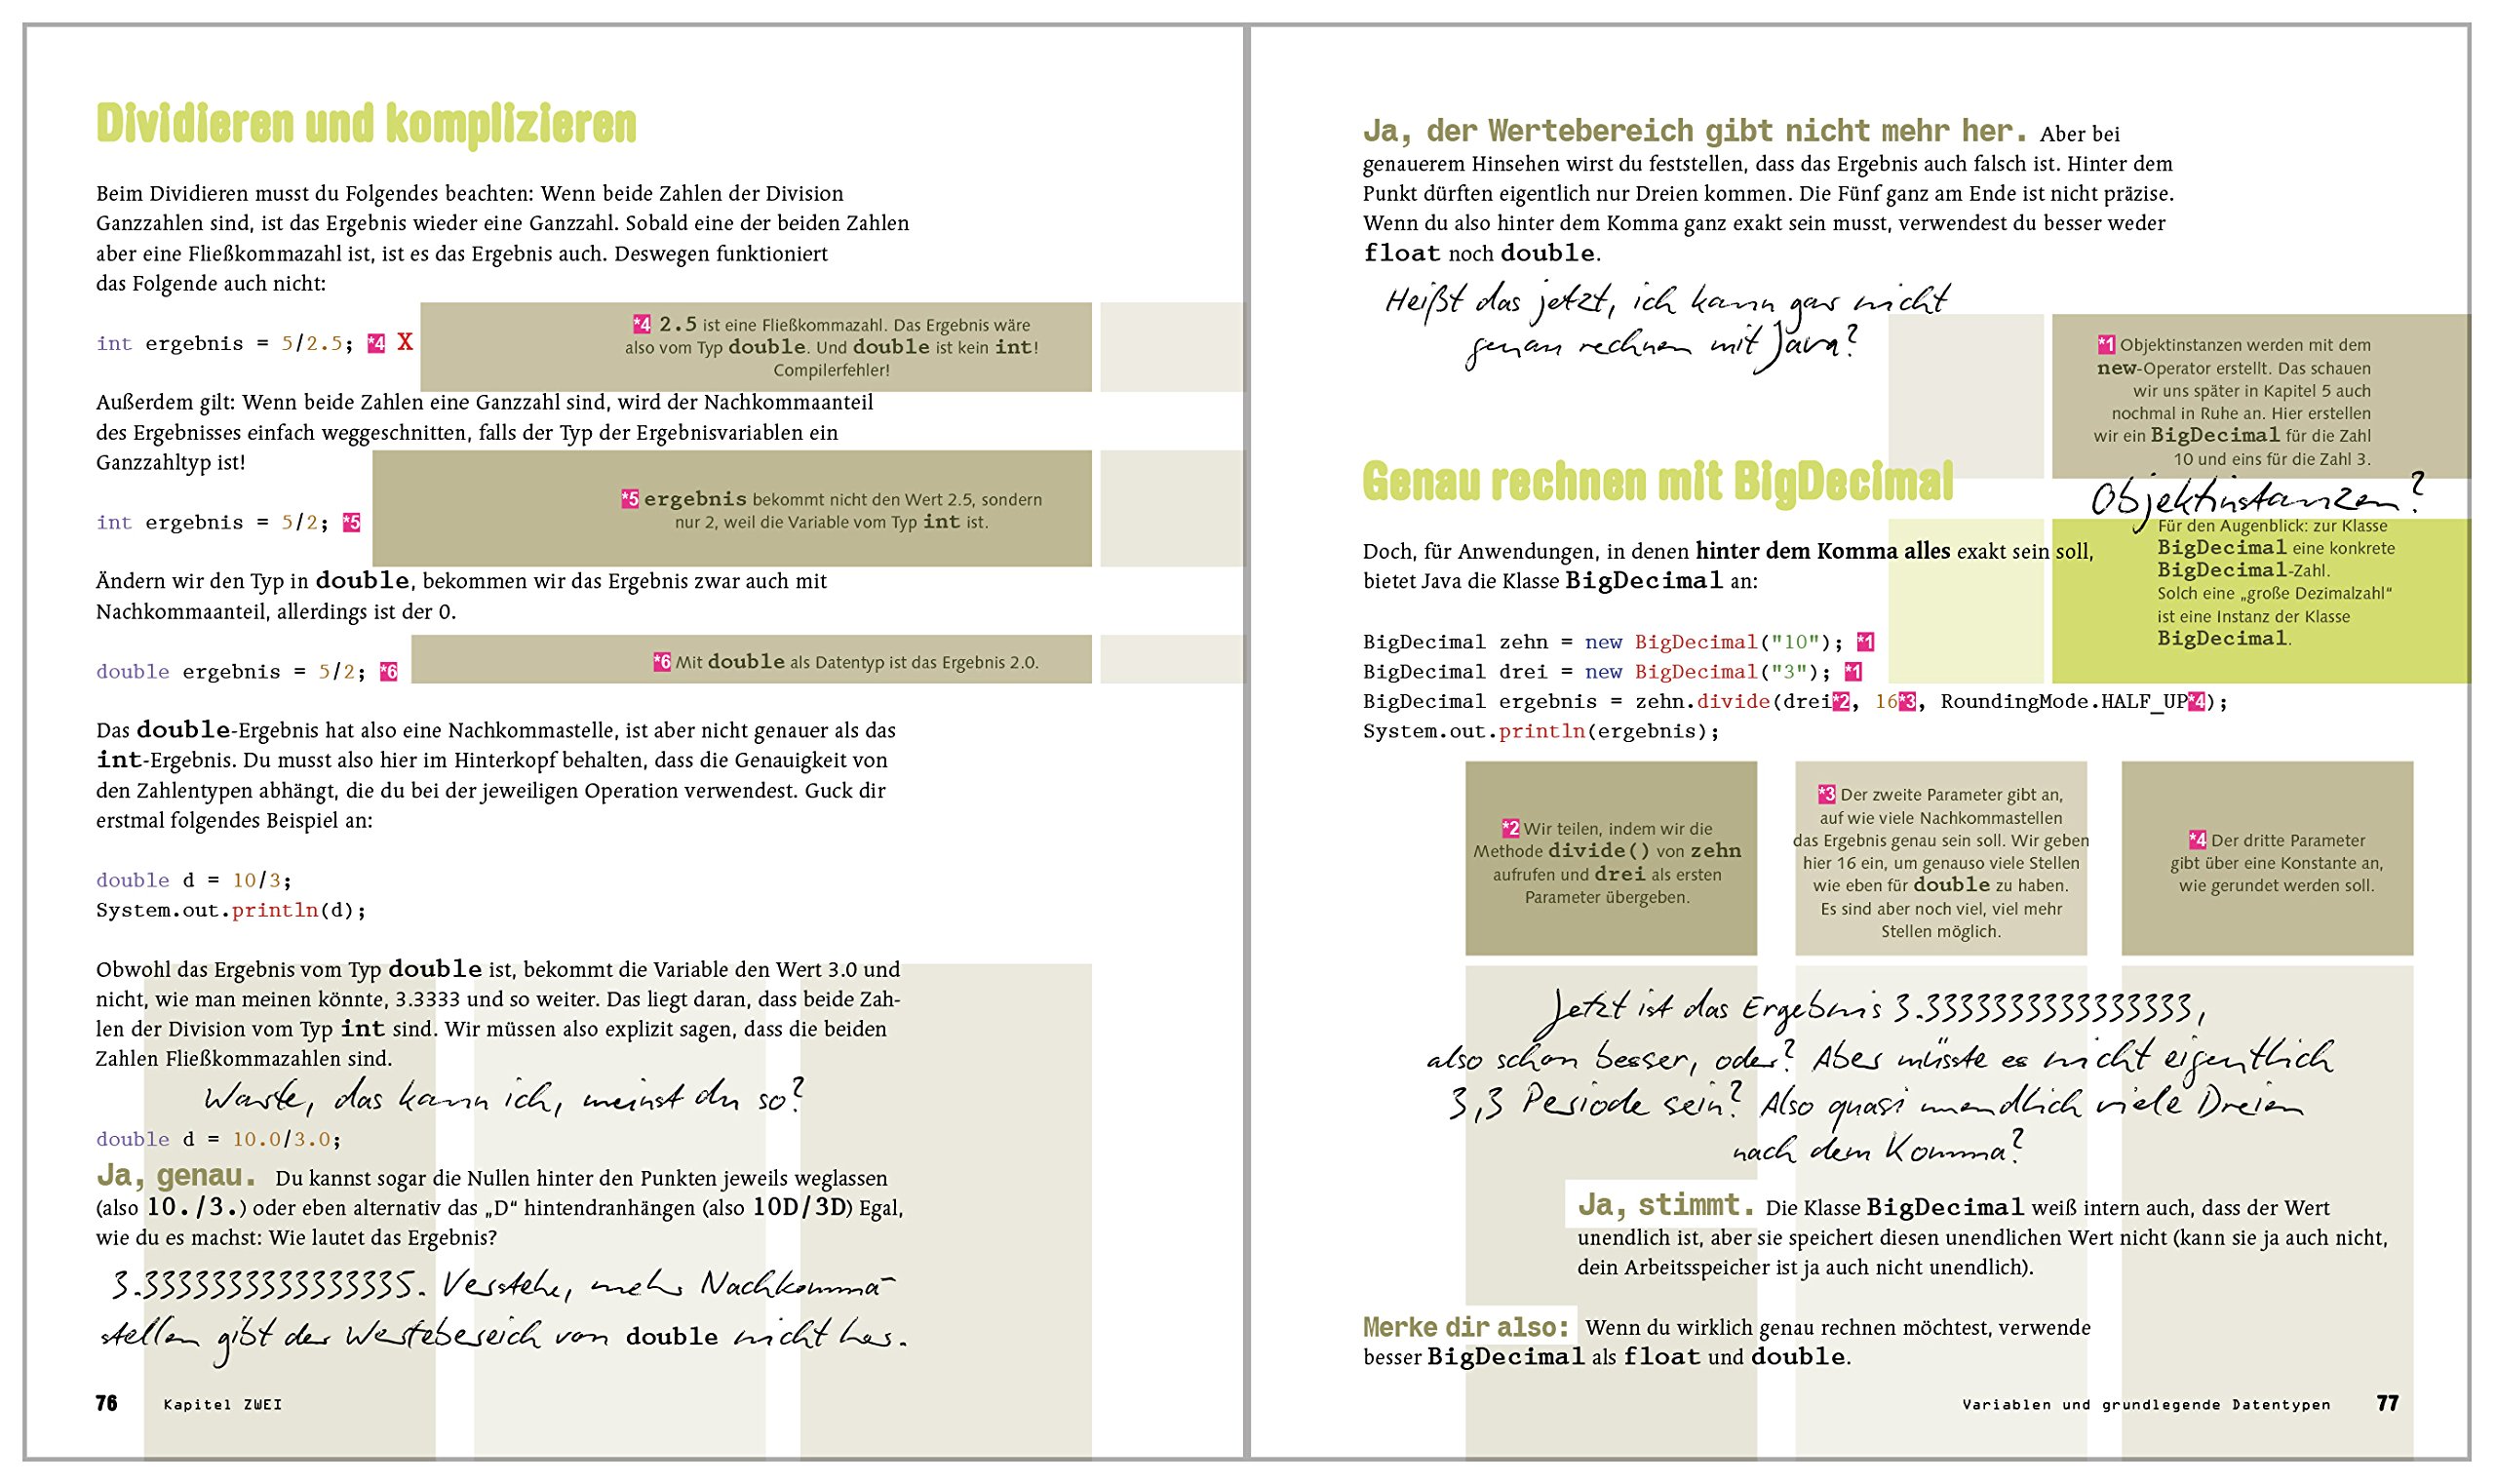 Dividieren und komplizieren
Beim Dividieren musst du Folgendes beachten: Wenn beide Zahlen der Division
Ganzzahlen sind, ist das Ergebnis wieder eine Ganzzahl. Sobald eine der beiden Zahlen
aber eine Fließkommazahl ist, ist es das Ergebnis auch. Deswegen funktioniert
das Folgende auch nicht:
int ergebnis = 5/2.5; *4 X
*4 2.5 ist eine Fließkommazahl. Das Ergebnis wäre
also vom Typ double. Und double ist kein int!
Compilerfehler!
Außerdem gilt: Wenn beide Zahlen eine Ganzzahl sind, wird der Nachkommaanteil
des Ergebnisses einfach weggeschnitten, falls der Typ der Ergebnisvariablen ein
Ganzzahltyp ist!
int ergebnis = 5/2; *5
*5 ergebnis bekommt nicht den Wert 2.5, sondern
nur 2, weil die Variable vom Typ int ist.
Ändern wir den Typ in double, bekommen wir das Ergebnis zwar auch mit
Nachkommaanteil, allerdings ist der 0.
double ergebnis = 5/2; *6
*6 Mit double als Datentyp ist das Ergebnis 2.0.
Das double-Ergebnis hat also eine Nachkommastelle, ist aber nicht genauer als das
int-Ergebnis. Du musst also hier im Hinterkopf behalten, dass die Genauigkeit von
den Zahlentypen abhängt, die du bei der jeweiligen Operation verwendest. Guck dir
erstmal folgendes Beispiel an:
double d = 10/3;
System.out.println(d);
Obwohl das Ergebnis vom Typ double ist, bekommt die Variable den Wert 3.0 und
nicht, wie man meinen könnte, 3.3333 und so weiter. Das liegt daran, dass beide Zah-
len der Division vom Typ int sind. Wir müssen also explizit sagen, dass die beiden
Zahlen Fließkommazahlen sind.
Warte, das kann ich, meinst du so?
double d = 10.0/3.0;
Ja, genau. Du kannst sogar die Nullen hinter den Punkten jeweils weglassen
(also 10./3.) oder eben alternativ das „D“ hintendranhängen (also 10D/3D) Egal,
wie du es machst: Wie lautet das Ergebnis?
3.3333333333333335. Verstehe, mehr Nachkomma-
stellen gibt der Wertebereich von double nicht her.
76 Kapitel ZWEI
Ja, der Wertebereich gibt nicht mehr her. Aber bei
genauerem Hinsehen wirst du feststellen, dass das Ergebnis auch falsch ist. Hinter dem
Punkt dürften eigentlich nur Dreien kommen. Die Fünf ganz am Ende ist nicht präzise.
Wenn du also hinter dem Komma ganz exakt sein musst, verwendest du besser weder
float noch double.
Heißt das jetzt, ich kann gar nicht
genau rechnen mit Java?
*1 Objektinstanzen werden mit dem
new-Operator erstellt. Das schauen
wir uns später in Kapitel 5 auch
nochmal in Ruhe an. Hier erstellen
wir ein BigDecimal für die Zahl
10 und eins für die Zahl 3.
Objektinstanzen?
Für den Augenblick: zur Klasse
BigDecimal eine konkrete
BigDecimal-Zahl.
Solch eine „große Dezimalzahl“
ist eine Instanz der Klasse
BigDecimal.
Genau rechnen mit BigDecimal
Doch, für Anwendungen, in denen hinter dem Komma alles exakt sein soll,
bietet Java die Klasse BigDecimal an:
BigDecimal zehn = new BigDecimal("10"); *1
BigDecimal drei = new BigDecimal("3"); *1
BigDecimal ergebnis = zehn.divide(drei*2, 16*3, RoundingMode.HALF_UP*4);
System.out.println(ergebnis);
*2 Wir teilen, indem wir die
Methode divide() von zehn
aufrufen und drei als ersten
Parameter übergeben.
*3 Der zweite Parameter gibt an,
auf wie viele Nachkommastellen
das Ergebnis genau sein soll. Wir geben
hier 16 ein, um genauso viele Stellen
wie eben für double zu haben.
Es sind aber noch viel, viel mehr
Stellen möglich.
*4 Der dritte Parameter
gibt über eine Konstante an,
wie gerundet werden soll.
Jetzt ist das Ergebnis 3.3333333333333333,
also schon besser, oder? Aber müsste es nicht eigentlich
3,3 Periode sein? Also quasi unendlich viele Dreien
nach dem Komma?
Ja, stimmt. Die Klasse BigDecimal weiß intern auch, dass der Wert
unendlich ist, aber sie speichert diesen unendlichen Wert nicht (kann sie ja auch nicht,
dein Arbeitsspeicher ist ja auch nicht unendlich).
Merke dir also: Wenn du wirklich genau rechnen möchtest, verwende
besser BigDecimal als float und double.
Variablen und grundlegende Datentypen 77